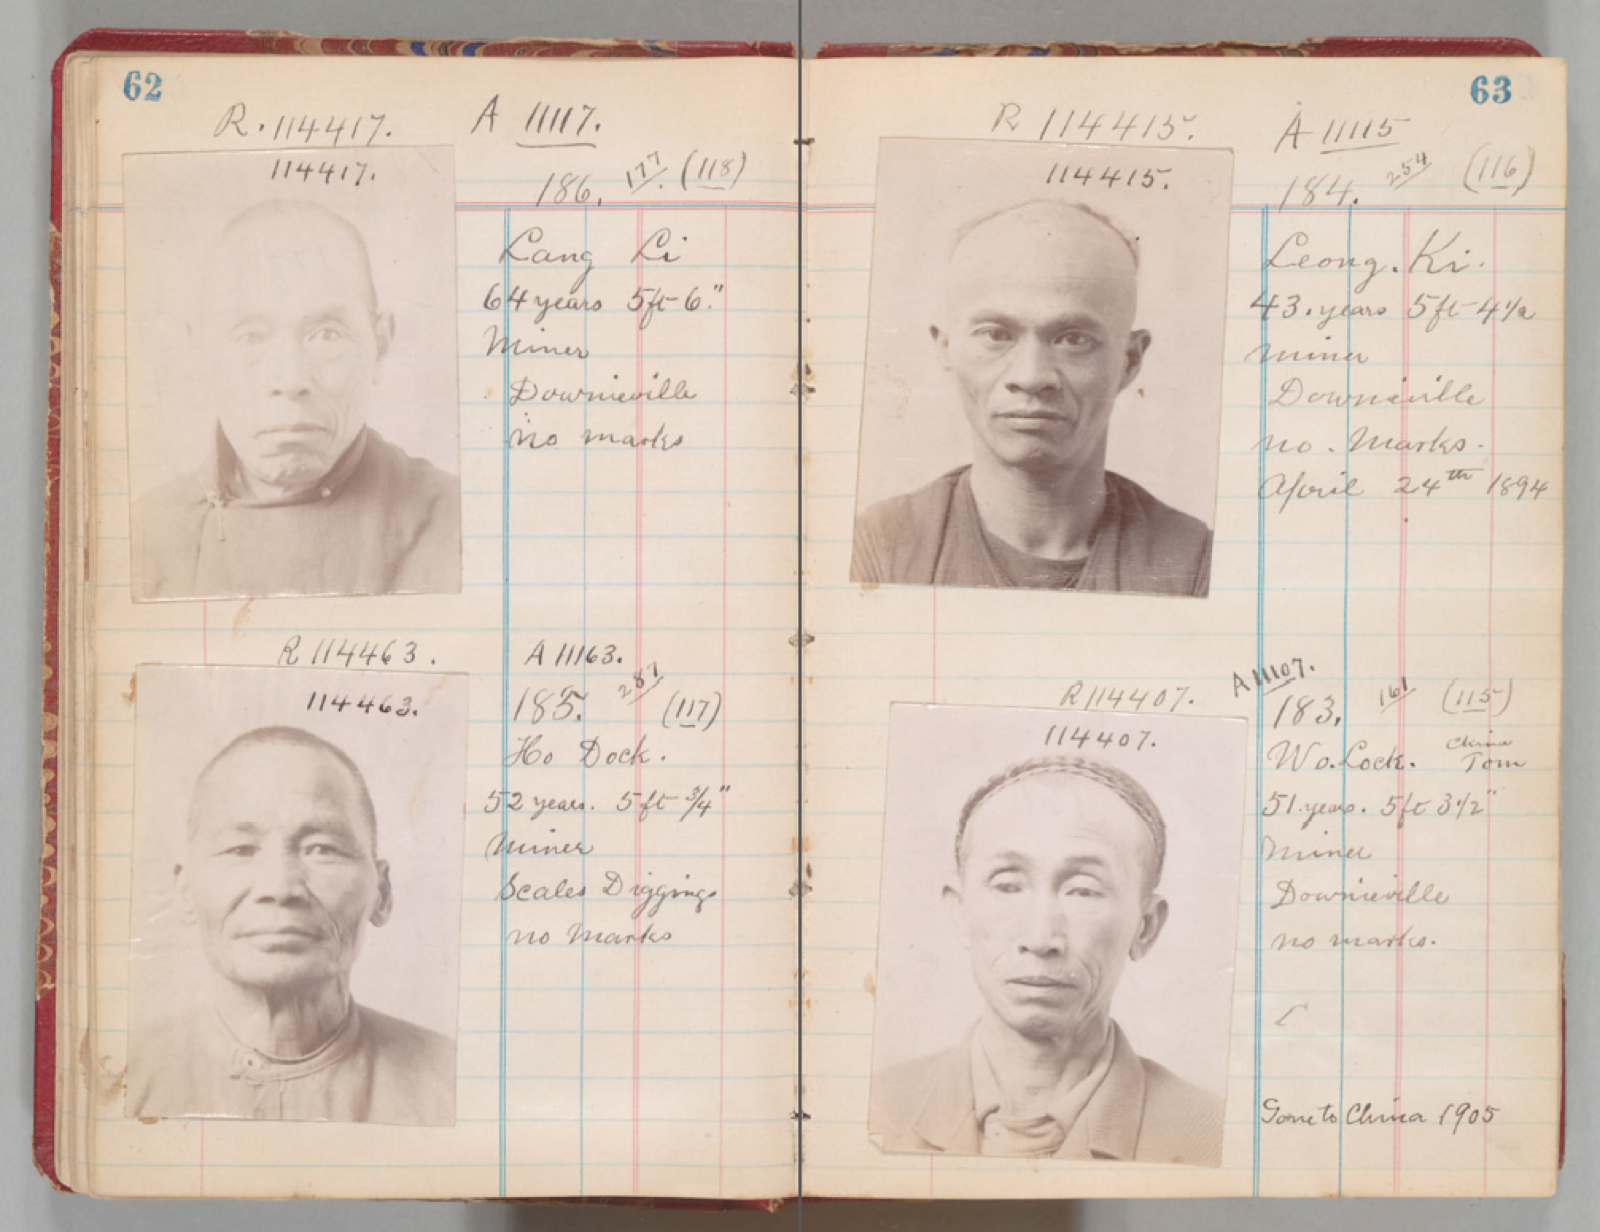 62
R. 114417. A 11117.
114417.
186. 177/. (118)
Lang Li
64 years 5ft 6."
Miner
Downieville
no marks
R 114463. A 11163.
114463.
185. 287/ (117)
Ho Dock.
52 years. 5ft 3/4"
Miner
Scales Diggings
no Marks
63
R 114415. A 11115
114415.
184. 254/ (116)
Leong. Ki.
43. years 5ft 4 1/2
Miner
Downieville
no. Marks.
April 24th 1894
R 114407. A 11107.
114407.
183. 161/ (115)
Wo. Lock. China Tom
51 years. 5ft 3 1/2"
Miner
Downieville
no marks.
Gone to China 1905